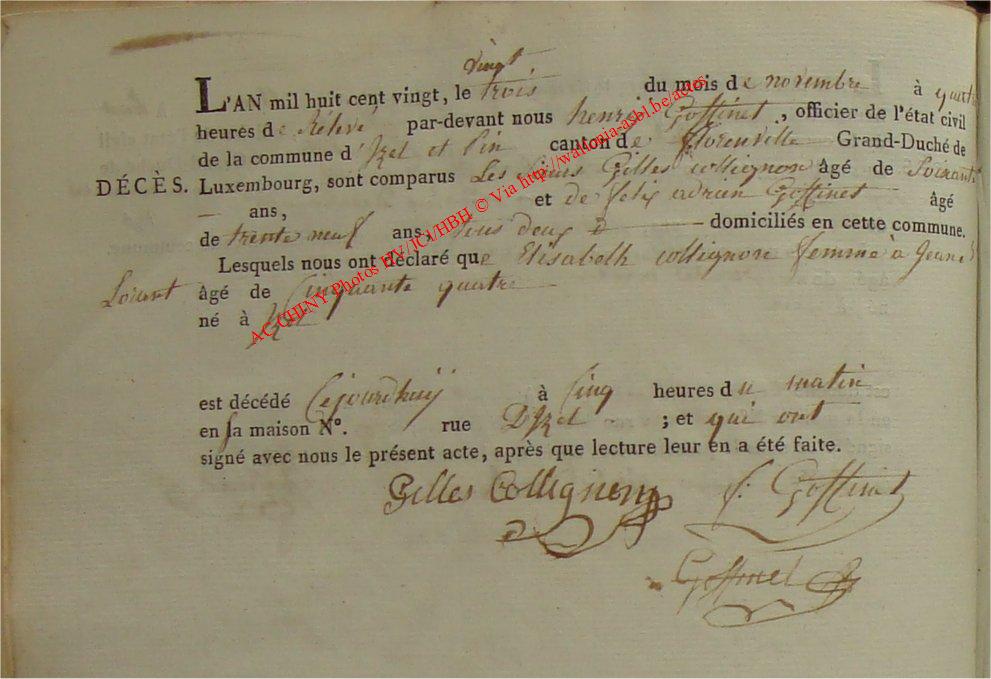 vingt
L'AN mil huit cent vingt, le trois du mois de novembre à quatre
heures de Rélevé, par-devant nous henri Goffinet, officier de l'état civil
de la commune d'Izel et Pin canton de florenville Grand-Duché de
DÉCÈS. Luxembourg, sont comparus Les sieurs Gilles collignon âgé de Soixante
— ans, et de felix adrien Goffinet âgé
de trente neuf ans, tous deux domiciliés en cette commune.
Lesquels nous ont déclaré que Elisabeth collignon femme à Jean
Lorant âgé de Cinquante quatre
né à Izel
est décédé Cejourdhuÿ à Cinq heures du matin
en sa maison N°. rue D'Izel ; et qui ont
signé avec nous le présent acte, après que lecture leur en a été faite.
Gilles Collignon f: Goffinet
Goffinet
AC CHINY Photos HV/JCJ/HBH © Via http://wallonia-asbl.be/actes